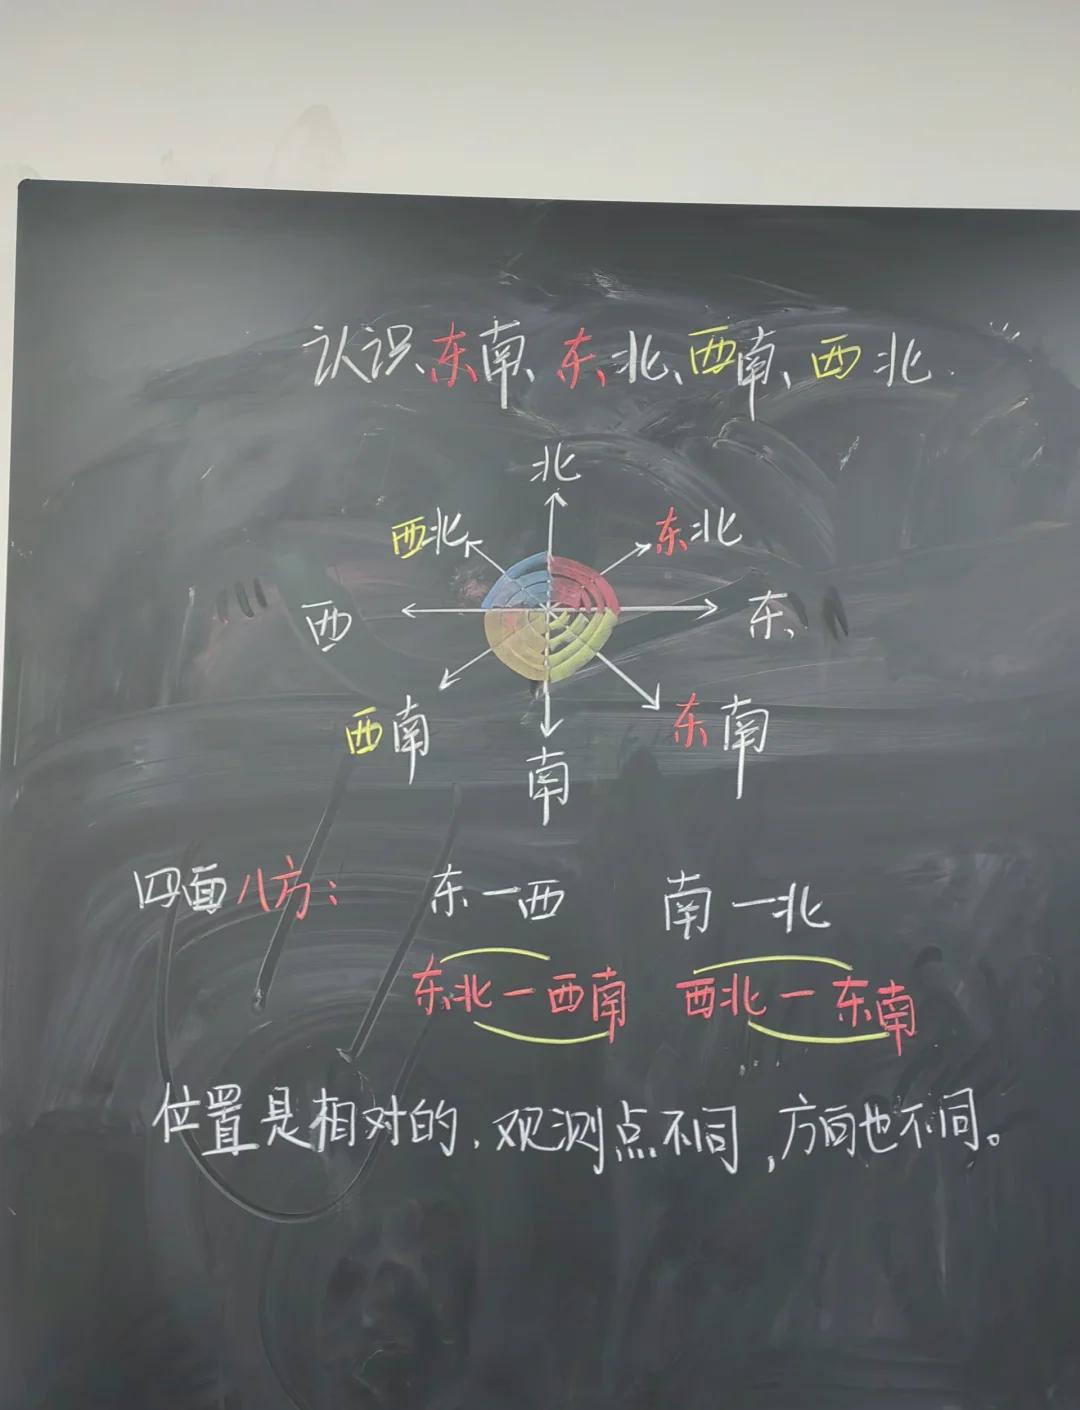 认识东南、东北、西南、西北
北
西北
东北
西
东
西南
东南
南
四面八方：
东—西
南—北
东北—西南
西北—东南
位置是相对的，观测点不同，方向也不同。